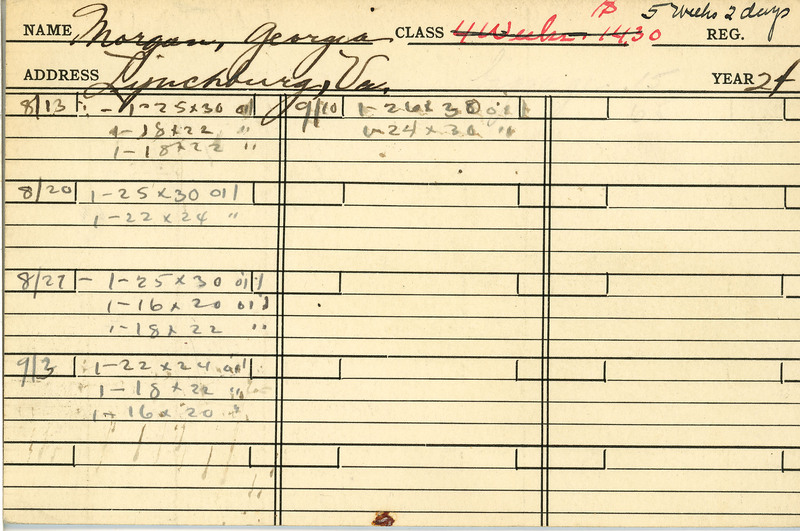 5 Weeks 2 days
NAME Morgan, Georgia CLASS 4 Weeks 1430 REG.
ADDRESS Lynchburg, Va. YEAR 24
8/13 - 1-25x30 oil
1-18x22 "
1-18x22 "
8/20 1-25x30 oil
1-22x24 "
8/27 - 1-25x30 oil
1-16x20 oil
1-18x22 "
9/3 1-22x24 oil
1-18x22 "
1-16x20 "
9/10 1-26x30 oil
1-24x30 "